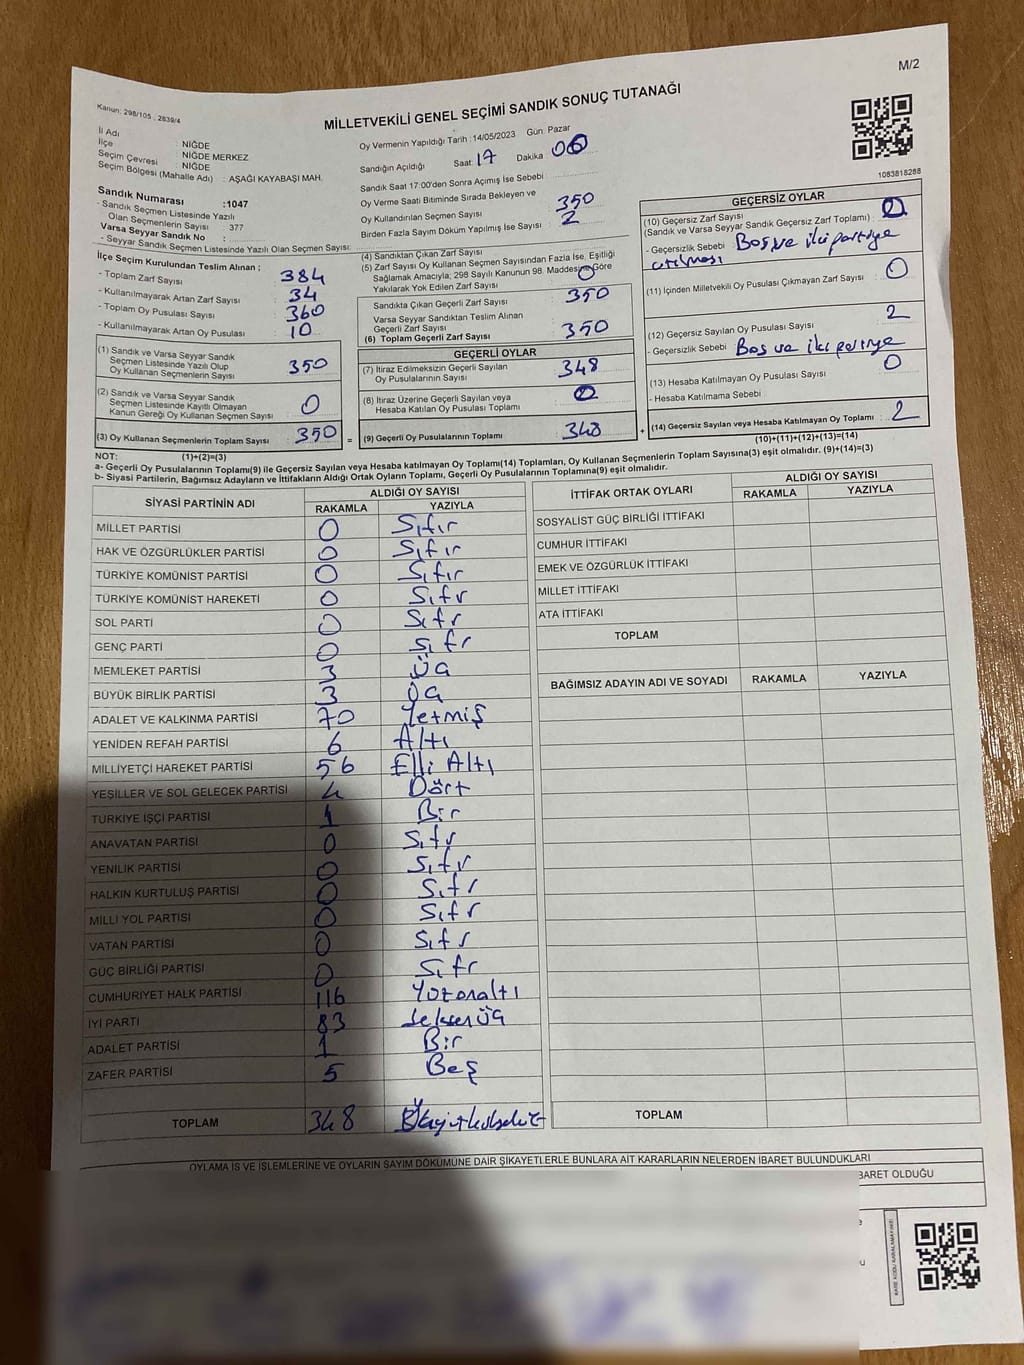 M/2
Kanun: 298/105 , 2839/4
MİLLETVEKİLİ GENEL SEÇİMİ SANDIK SONUÇ TUTANAĞI
İl Adı : NİĞDE
İlçe : NİĞDE MERKEZ
Seçim Çevresi : NİĞDE
Seçim Bölgesi (Mahalle Adı) : AŞAĞI KAYABAŞI MAH.
Sandık Numarası :1047
- Sandık Seçmen Listesinde Yazılı
Olan Seçmenlerin Sayısı : 377
Varsa Seyyar Sandık No :
- Seyyar Sandık Seçmen Listesinde Yazılı Olan Seçmen Sayısı:
Oy Vermenin Yapıldığı Tarih : 14/05/2023 Gün: Pazar
Sandığın Açıldığı Saat: 17 Dakika 00
Sandık Saat 17:00'den Sonra Açımış İse Sebebi
Oy Verme Saati Bitiminde Sırada Bekleyen ve
Oy Kullandırılan Seçmen Sayısı 350
Birden Fazla Sayım Döküm Yapılmış İse Sayısı : 2
1083818288
İlçe Seçim Kurulundan Teslim Alınan ;
- Toplam Zarf Sayısı : 384
- Kullanılmayarak Artan Zarf Sayısı : 34
- Toplam Oy Pusulası Sayısı : 360
- Kullanılmayarak Artan Oy Pusulası : 10
(1) Sandık ve Varsa Seyyar Sandık
Seçmen Listesinde Yazılı Olup
Oy Kullanan Seçmenlerin Sayısı : 350
(2) Sandık ve Varsa Seyyar Sandık
Seçmen Listesinde Kayıtlı Olmayan
Kanun Gereği Oy Kullanan Seçmen Sayısı : 0
(3) Oy Kullanan Seçmenlerin Toplam Sayısı : 350 =
(1)+(2)=(3)
(4) Sandıktan Çıkan Zarf Sayısı
(5) Zarf Sayısı Oy Kullanan Seçmen Sayısından Fazla İse, Eşitliği
Sağlamak Amacıyla; 298 Sayılı Kanunun 98. Maddesine Göre
Yakılarak Yok Edilen Zarf Sayısı : 0
Sandıkta Çıkan Geçerli Zarf Sayısı 350
Varsa Seyyar Sandıktan Teslim Alınan
Geçerli Zarf Sayısı
(6) Toplam Geçerli Zarf Sayısı : 350
GEÇERLİ OYLAR
(7) İtiraz Edilmeksizin Geçerli Sayılan
Oy Pusulalarının Sayısı : 348
(8) İtiraz Üzerine Geçerli Sayılan veya
Hesaba Katılan Oy Pusulası Toplamı : 0
(9) Geçerli Oy Pusulalarının Toplamı : 348 +
GEÇERSİZ OYLAR
(10) Geçersiz Zarf Sayısı
(Sandık ve Varsa Seyyar Sandık Geçersiz Zarf Toplamı) : 0
- Geçersizlik Sebebi Boş ve iki partiye
atılması
(11) İçinden Milletvekili Oy Pusulası Çıkmayan Zarf Sayısı : 0
(12) Geçersiz Sayılan Oy Pusulası Sayısı : 2
- Geçersizlik Sebebi Boş ve iki partiye
(13) Hesaba Katılmayan Oy Pusulası Sayısı : 0
- Hesaba Katılmama Sebebi
(14) Geçersiz Sayılan veya Hesaba Katılmayan Oy Toplamı : 2
(10)+(11)+(12)+(13)=(14)
NOT:
a- Geçerli Oy Pusulalarının Toplamı(9) ile Geçersiz Sayılan veya Hesaba katılmayan Oy Toplamı(14) Toplamları, Oy Kullanan Seçmenlerin Toplam Sayısına(3) eşit olmalıdır. (9)+(14)=(3)
b- Siyasi Partilerin, Bağımsız Adayların ve İttifakların Aldığı Ortak Oyların Toplamı, Geçerli Oy Pusulalarının Toplamına(9) eşit olmalıdır.
SİYASİ PARTİNİN ADI ALDIĞI OY SAYISI
RAKAMLA YAZIYLA
MİLLET PARTİSİ 0 Sıfır
HAK VE ÖZGÜRLÜKLER PARTİSİ 0 Sıfır
TÜRKİYE KOMÜNİST PARTİSİ 0 Sıfır
TÜRKİYE KOMÜNİST HAREKETİ 0 Sıfr
SOL PARTİ 0 Sıfr
GENÇ PARTİ 0 Sıfr
MEMLEKET PARTİSİ 3 Üç
BÜYÜK BİRLİK PARTİSİ 3 Üç
ADALET VE KALKINMA PARTİSİ 70 Yetmiş
YENİDEN REFAH PARTİSİ 6 Altı
MİLLİYETÇİ HAREKET PARTİSİ 56 Elli Altı
YEŞİLLER VE SOL GELECEK PARTİSİ 4 Dört
TÜRKİYE İŞÇİ PARTİSİ 1 Bir
ANAVATAN PARTİSİ 0 Sıfr
YENİLİK PARTİSİ 0 Sıfr
HALKIN KURTULUŞ PARTİSİ 0 Sıfr
MİLLİ YOL PARTİSİ 0 Sıfr
VATAN PARTİSİ 0 Sıfr
GÜÇ BİRLİĞİ PARTİSİ 0 Sıfr
CUMHURİYET HALK PARTİSİ 116 Yüzonaltı
İYİ PARTİ 83 Seksenüç
ADALET PARTİSİ 1 Bir
ZAFER PARTİSİ 5 Beş
TOPLAM 348
İTTİFAK ORTAK OYLARI ALDIĞI OY SAYISI
RAKAMLA YAZIYLA
SOSYALİST GÜÇ BİRLİĞİ İTTİFAKI
CUMHUR İTTİFAKI
EMEK VE ÖZGÜRLÜK İTTİFAKI
MİLLET İTTİFAKI
ATA İTTİFAKI
TOPLAM
BAĞIMSIZ ADAYIN ADI VE SOYADI RAKAMLA YAZIYLA
TOPLAM
OYLAMA İŞ VE İŞLEMLERİNE VE OYLARIN SAYIM DÖKÜMÜNE DAİR ŞİKAYETLERLE BUNLARA AİT KARARLARIN NELERDEN İBARET BULUNDUKLARI
BARET OLDUĞU